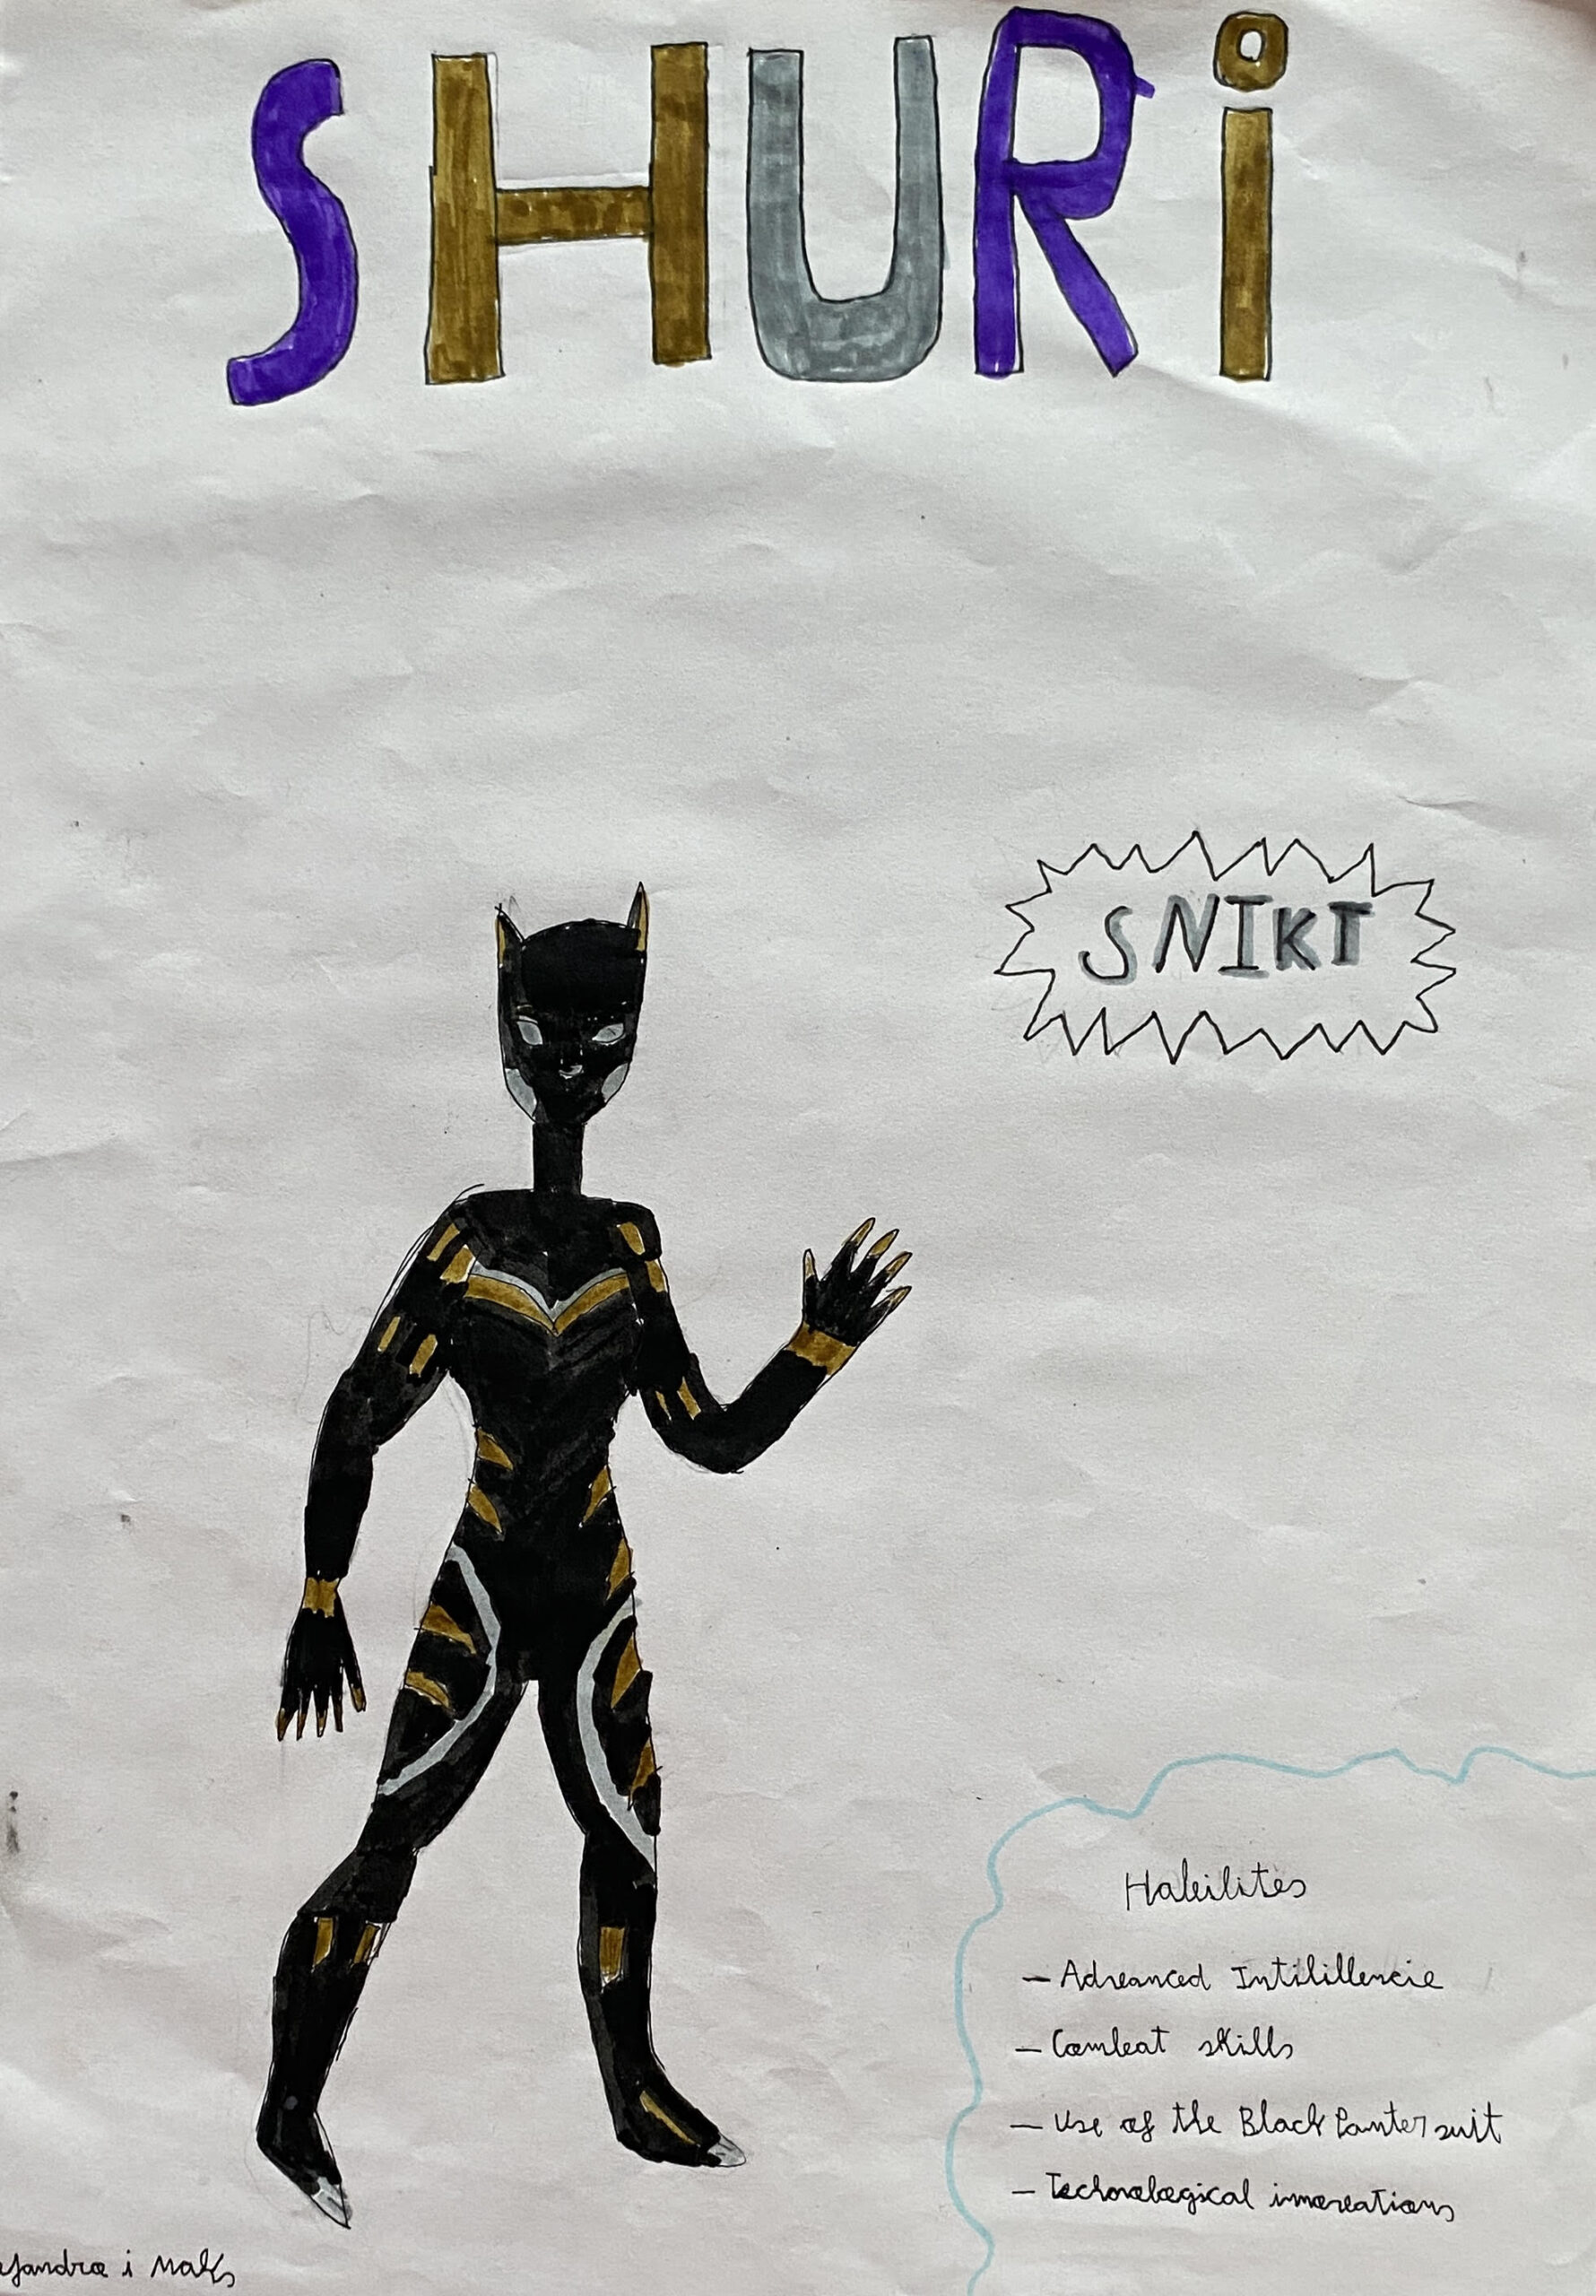 SHURi
SNIKT
Habilites
- Advanced Intilillencie
- Combat skills
- Use of the Black Panter suit
- Technological innovations
ejandra i Mak